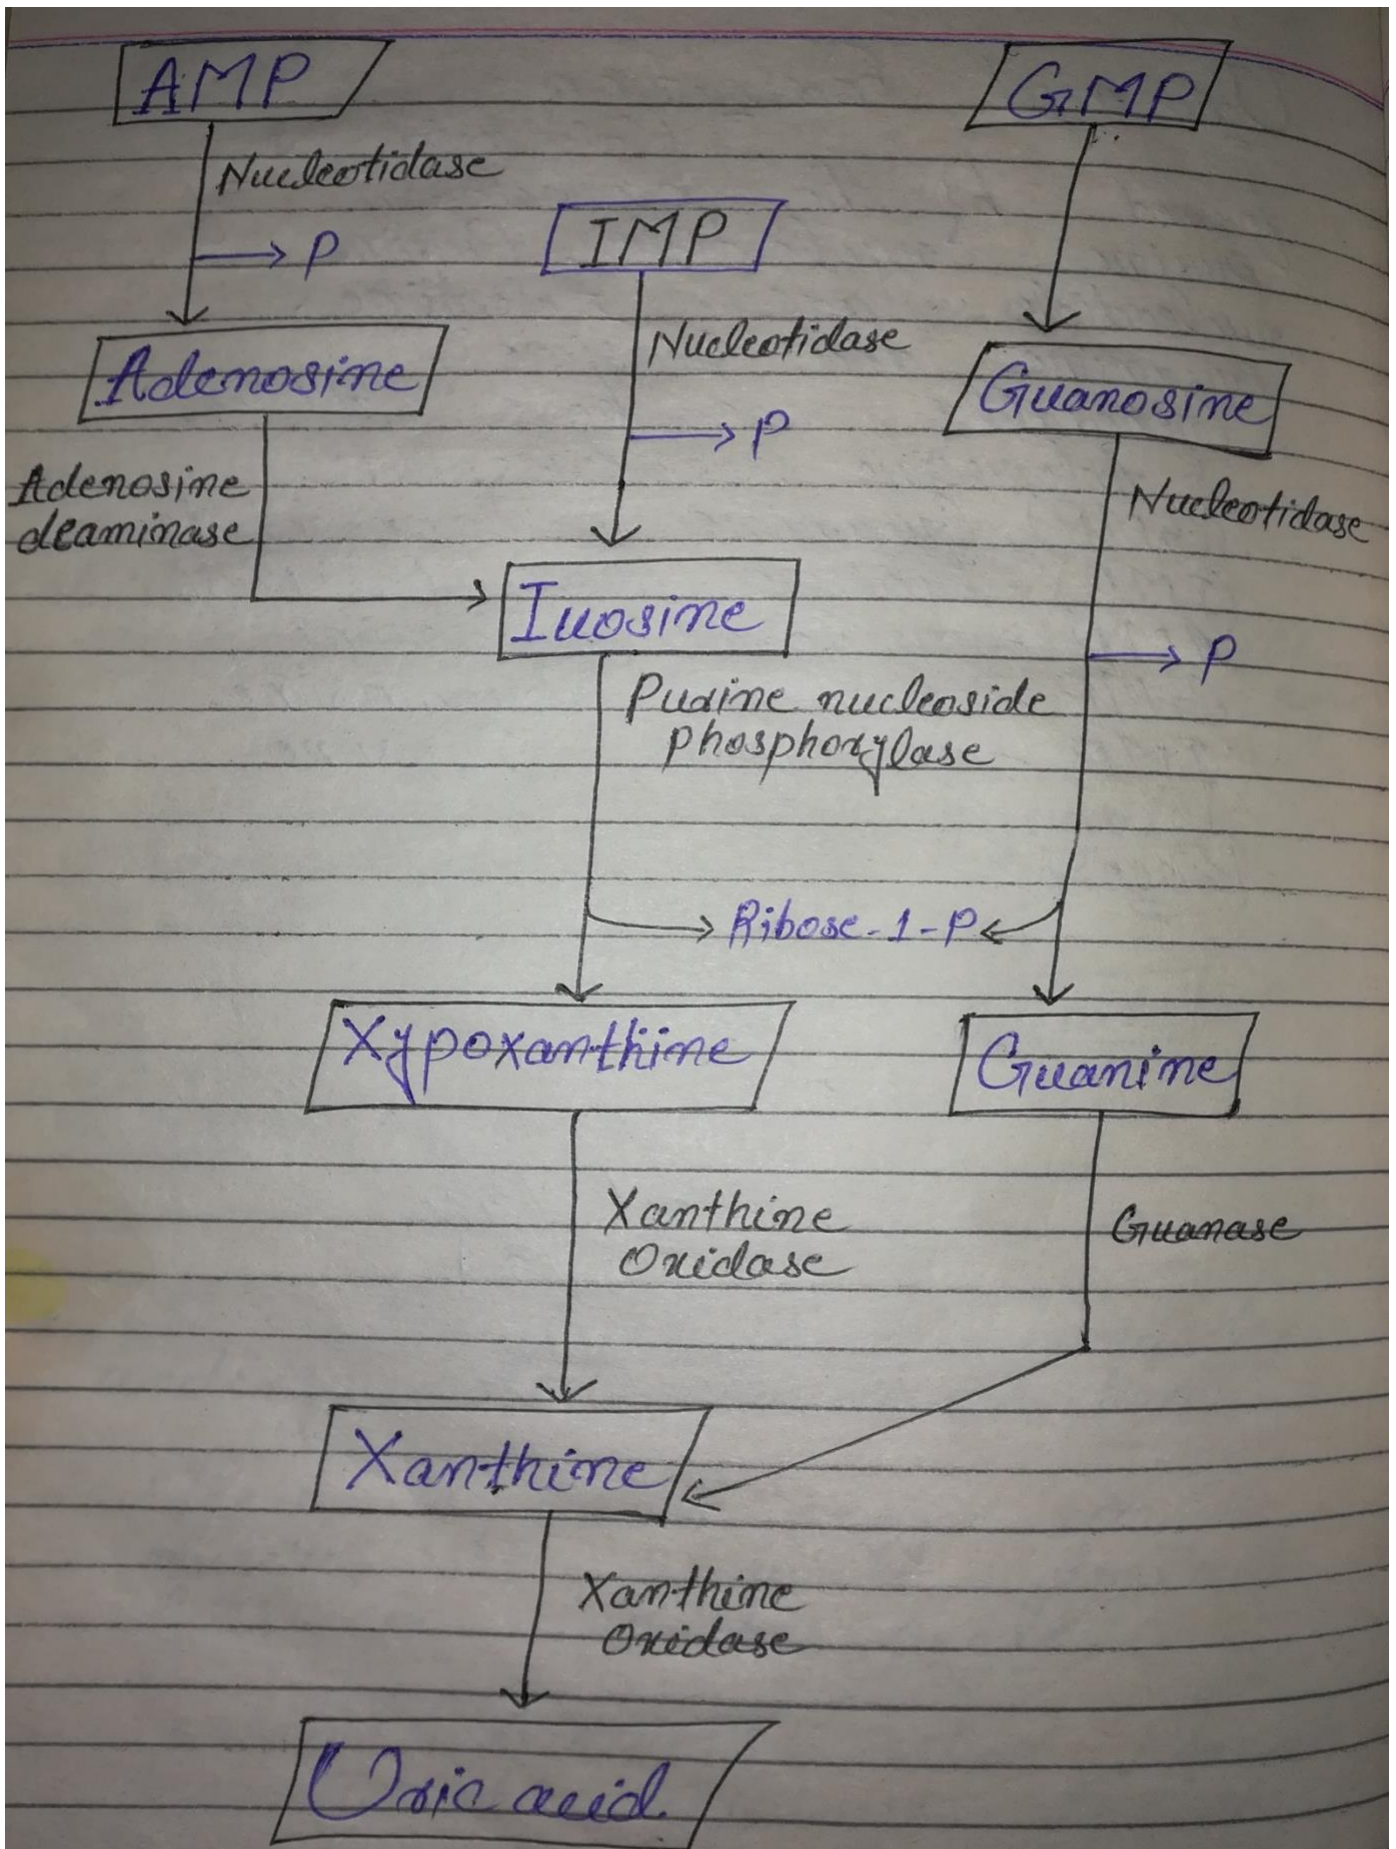 AMP
GMP
Nucleotidase
P
IMP
Nucleotidase
Adenosine
Guanosine
P
Adenosine
deaminase
Nucleotidase
Inosine
P
Purine nucleoside
phosphorylase
Ribose-1-P
Xypoxanthine
Guanine
Xanthine
Oxidase
Guanase
Xanthine
Xanthine
Oxidase
Uric acid